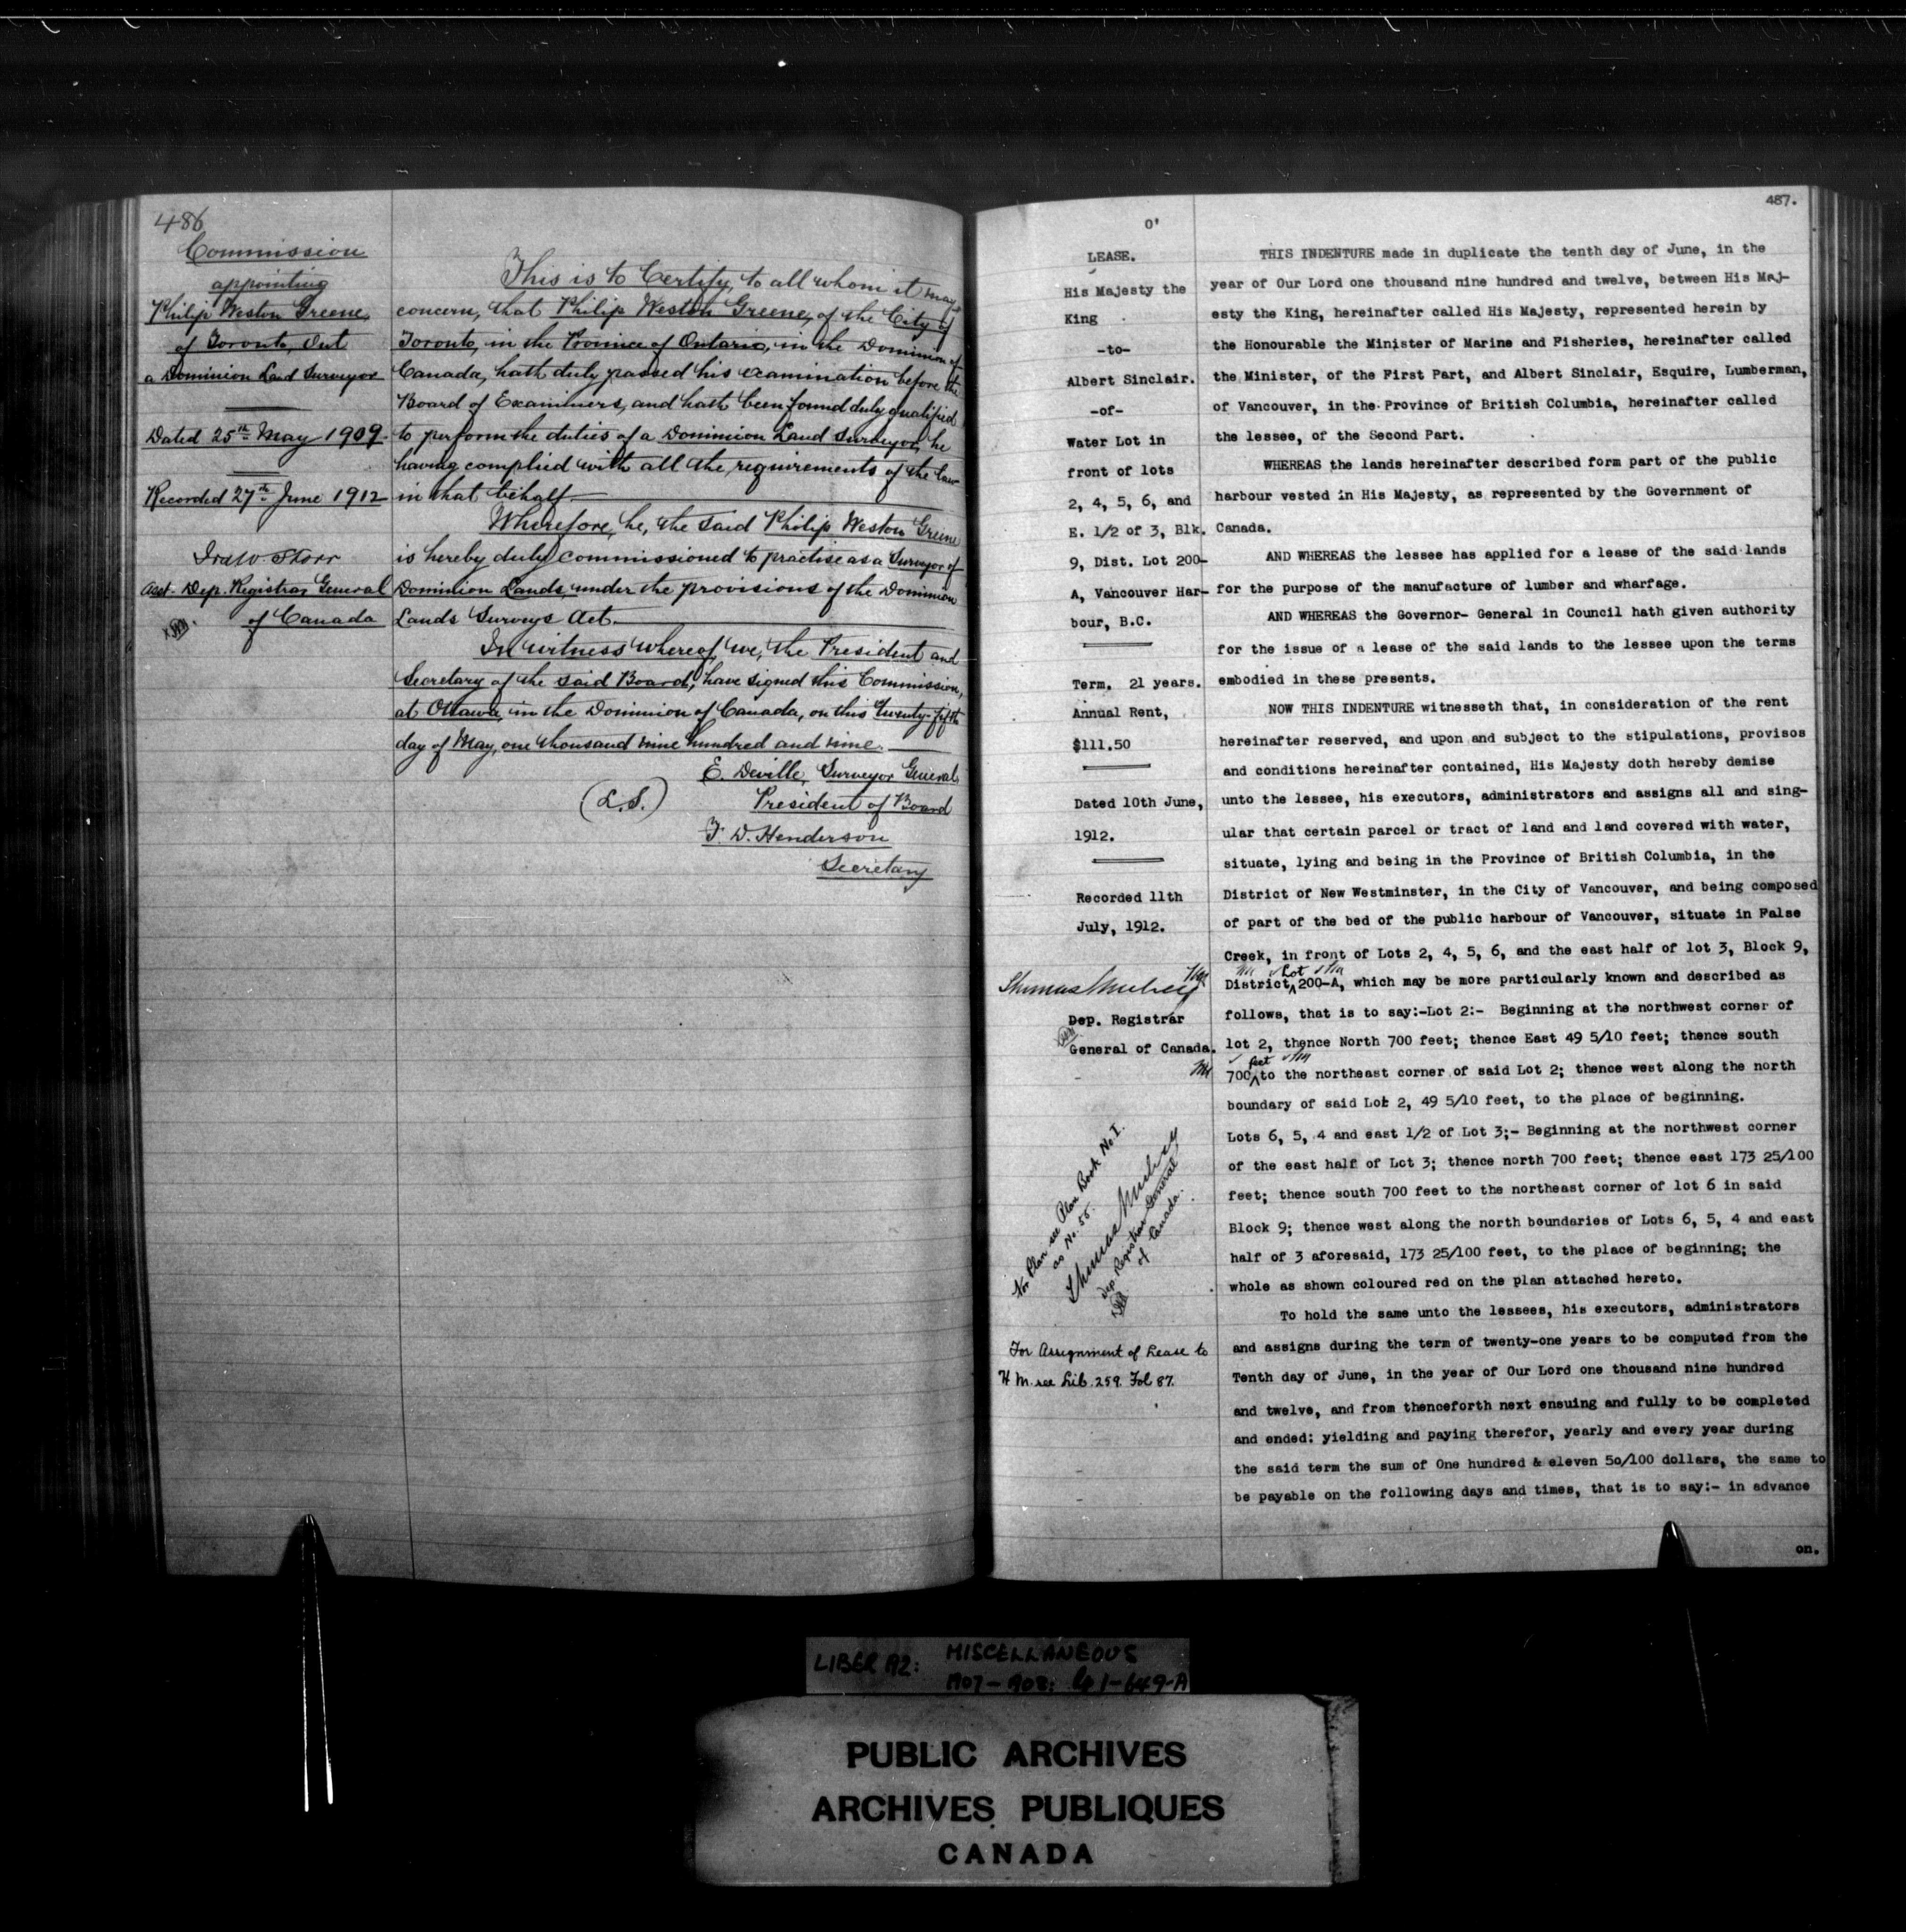 486
Commission
appointing
Philip Weston Greene,
of Toronto, Ont
a Dominion Land Surveyor
Dated 25th May 1909.
Recorded 27th June 1912
Ira W. Storr
Asst. Dep. Registrar General
of Canada
This is to Certify, to all whom it may
concern, that Philip Weston Greene, of the City of
Toronto, in the Province of Ontario, in the Dominion of
Canada, hath duly passed his examination before the
Board of Examiners, and hath been found duly qualified
to perform the duties of a Dominion Land Surveyor, he
having complied with all the requirements of the law
in that behalf.
Wherefore, he, the said Philip Weston Greene
is hereby duly commissioned to practise as a Surveyor of
Dominion Lands, under the provisions of the Dominion
Lands Surveys Act.
In witness whereof, we, the President and
Secretary of the said Board, have signed this Commission,
at Ottawa, in the Dominion of Canada, on this twenty-fifth
day of May, one thousand nine hundred and nine.
E. Deville, Surveyor General
(L.S.) President of Board
T. D. Henderson
Secretary
487.
0'
LEASE.
His Majesty the
King
-to-
Albert Sinclair.
-of-
Water Lot in
front of lots
2, 4, 5, 6, and
E. 1/2 of 3, Blk.
9, Dist. Lot 200-
A, Vancouver Har-
bour, B.C.
Term, 21 years.
Annual Rent,
$111.50
Dated 10th June,
1912.
Recorded 11th
July, 1912.
Thomas Mulvey
Dep. Registrar
General of Canada.
For Plan see Plan Book No. I.
as No. 55.
Thomas Mulvey
Dep. Registrar General
of Canada.
For Assignment of Lease to
H M. see Lib. 259. Fol 87.
THIS INDENTURE made in duplicate the tenth day of June, in the
year of Our Lord one thousand nine hundred and twelve, between His Maj-
esty the King, hereinafter called His Majesty, represented herein by
the Honourable the Minister of Marine and Fisheries, hereinafter called
the Minister, of the First Part, and Albert Sinclair, Esquire, Lumberman,
of Vancouver, in the Province of British Columbia, hereinafter called
the lessee, of the Second Part.
WHEREAS the lands hereinafter described form part of the public
harbour vested in His Majesty, as represented by the Government of
Canada.
AND WHEREAS the lessee has applied for a lease of the said lands
for the purpose of the manufacture of lumber and wharfage.
AND WHEREAS the Governor- General in Council hath given authority
for the issue of a lease of the said lands to the lessee upon the terms
embodied in these presents.
NOW THIS INDENTURE witnesseth that, in consideration of the rent
hereinafter reserved, and upon and subject to the stipulations, provisos
and conditions hereinafter contained, His Majesty doth hereby demise
unto the lessee, his executors, administrators and assigns all and sing-
ular that certain parcel or tract of land and land covered with water,
situate, lying and being in the Province of British Columbia, in the
District of New Westminster, in the City of Vancouver, and being composed
of part of the bed of the public harbour of Vancouver, situate in False
Creek, in front of Lots 2, 4, 5, 6, and the east half of lot 3, Block 9,
District Lot 200-A, which may be more particularly known and described as
follows, that is to say:-Lot 2:- Beginning at the northwest corner of
lot 2, thence North 700 feet; thence East 49 5/10 feet; thence south
700 feet to the northeast corner of said Lot 2; thence west along the north
boundary of said Lot 2, 49 5/10 feet, to the place of beginning.
Lots 6, 5, 4 and east 1/2 of Lot 3;- Beginning at the northwest corner
of the east half of Lot 3; thence north 700 feet; thence east 173 25/100
feet; thence south 700 feet to the northeast corner of lot 6 in said
Block 9; thence west along the north boundaries of Lots 6, 5, 4 and east
half of 3 aforesaid, 173 25/100 feet, to the place of beginning; the
whole as shown coloured red on the plan attached hereto.
To hold the same unto the lessees, his executors, administrators
and assigns during the term of twenty-one years to be computed from the
Tenth day of June, in the year of Our Lord one thousand nine hundred
and twelve, and from thenceforth next ensuing and fully to be completed
and ended: yielding and paying therefor, yearly and every year during
the said term the sum of One hundred & eleven 50/100 dollars, the same to
be payable on the following days and times, that is to say:- in advance
on.
LIBER 192: MISCELLANEOUS
PUBLIC ARCHIVES
ARCHIVES PUBLIQUES
CANADA